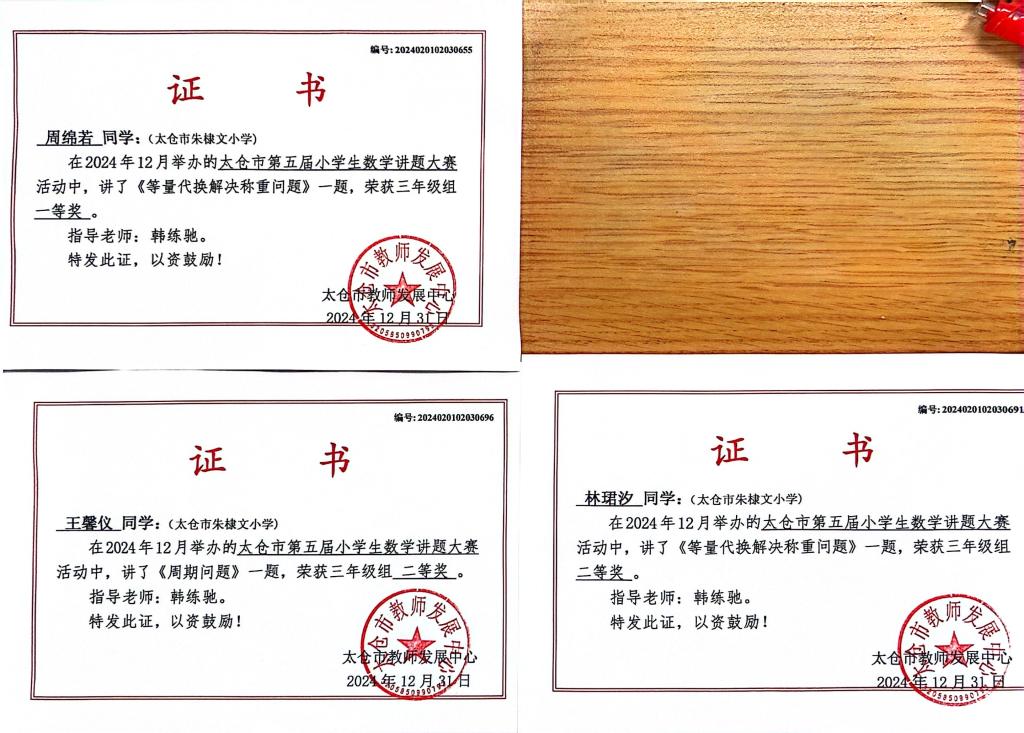 编号:2024020102030655
证 书
周绵若 同学：(太仓市朱棣文小学)
在2024年12月举办的太仓市第五届小学生数学讲题大赛
活动中，讲了《等量代换解决称重问题》一题，荣获三年级组
一等奖 。
指导老师：韩练驰。
特发此证，以资鼓励！
太仓市教师发展中心
2024年12月31日
太仓市教师发展中心
编号:2024020102030696
证 书
王馨仪 同学：(太仓市朱棣文小学)
在2024年12月举办的太仓市第五届小学生数学讲题大赛
活动中，讲了《周期问题》一题，荣获三年级组 二等奖 。
指导老师：韩练驰。
特发此证，以资鼓励！
太仓市教师发展中心
2024年12月31日
太仓市教师发展中心
编号:2024020102030691
证 书
林珺汐 同学：(太仓市朱棣文小学)
在2024年12月举办的太仓市第五届小学生数学讲题大赛
活动中，讲了《等量代换解决称重问题》一题，荣获三年级组
二等奖 。
指导老师：韩练驰。
特发此证，以资鼓励！
太仓市教师发展中心
2024年12月31日
太仓市教师发展中心